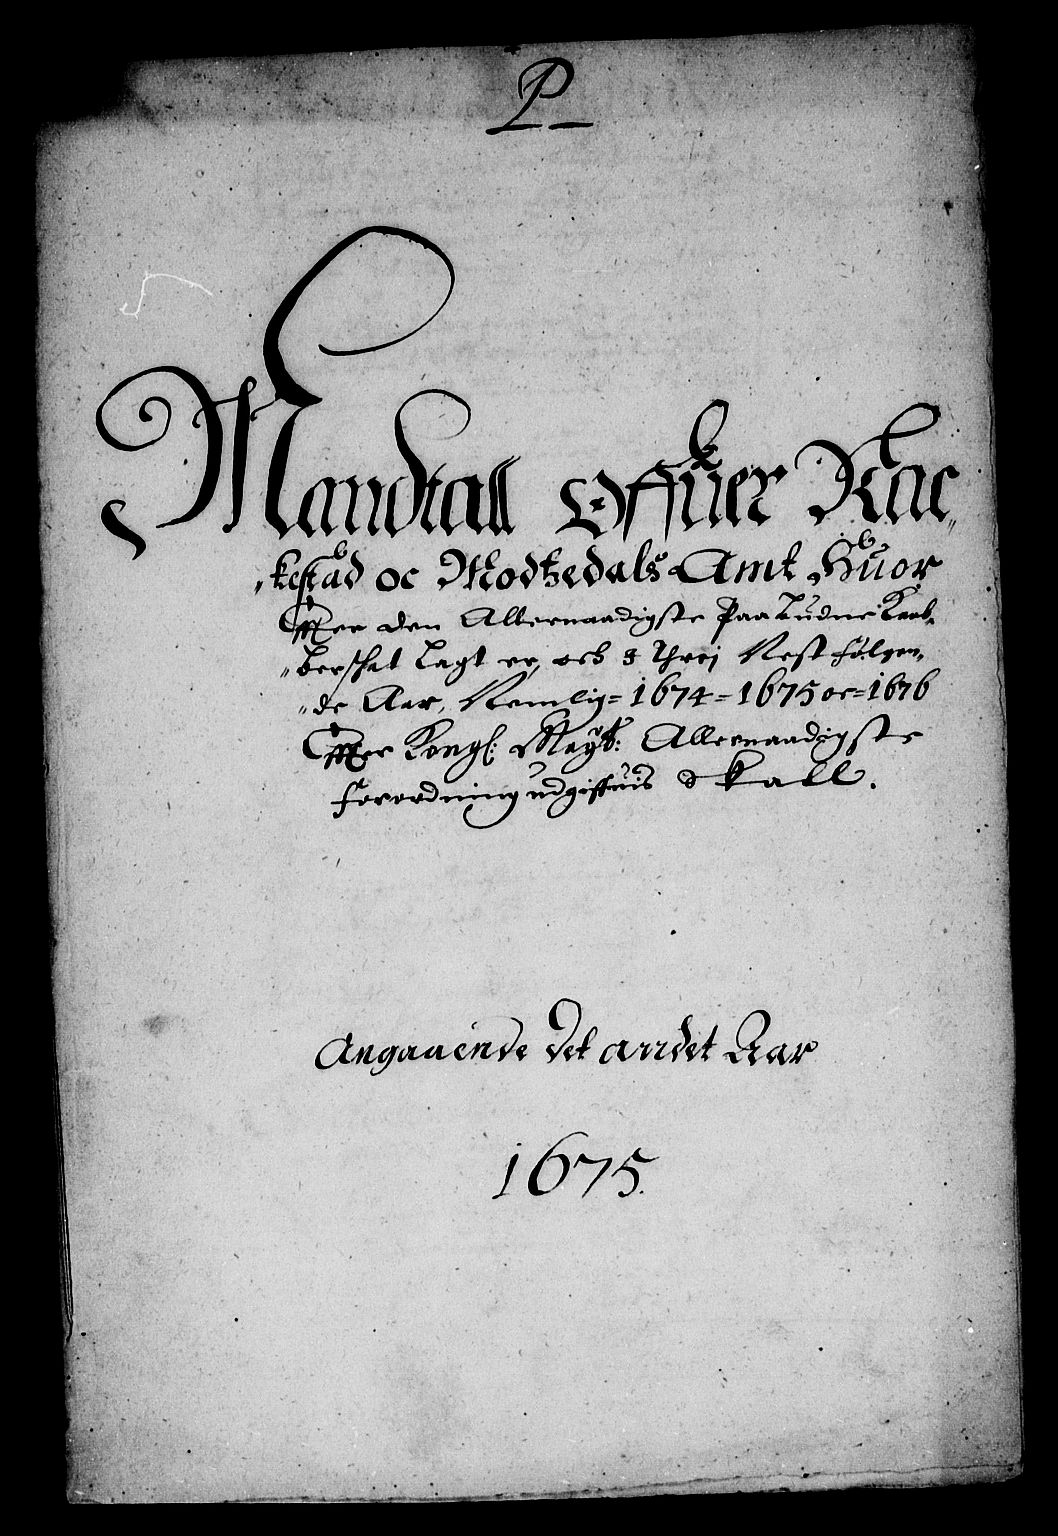 P
Mandtall Offuer Rac„
„kestad oc Modtzedals Amt Huor
Effter den Allernaadigste Paa Ludne Kaab„
„berschat Lagt er, och i Threj Nest følgen„
„de Aar, Nemlig= 1674 = 1675 oc = 1676
Effter Kongl: Maytt: Allernaadigste
forordning udgiffuis Skall.
Angaaende det andet Aar
1675.